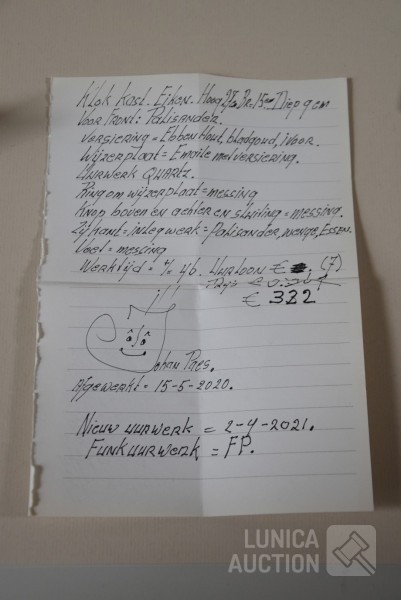 Klok Kast. Eiken. Hoog 27cm Br. 15cm Diep 9cm
Voor Front: Palisander.
versiering = Ebbenhout, bladgoud, ivoor.
Wijzerplaat = Emaile met versiering.
Uurwerk QUARTZ.
Ring om wijzerplaat = messing
Knop boven en achter en sluiting = messing.
Zijkant = inlegwerk = Palisander, wenge, Essen.
Voet = messing
Werktijd = 46. Uurloon € (7)
€ 322
Johan Paes.
Afgewerkt = 15-5-2020.
Nieuw uurwerk = 2-4-2021.
Funkuurwerk = FP.
LUNICA
AUCTION